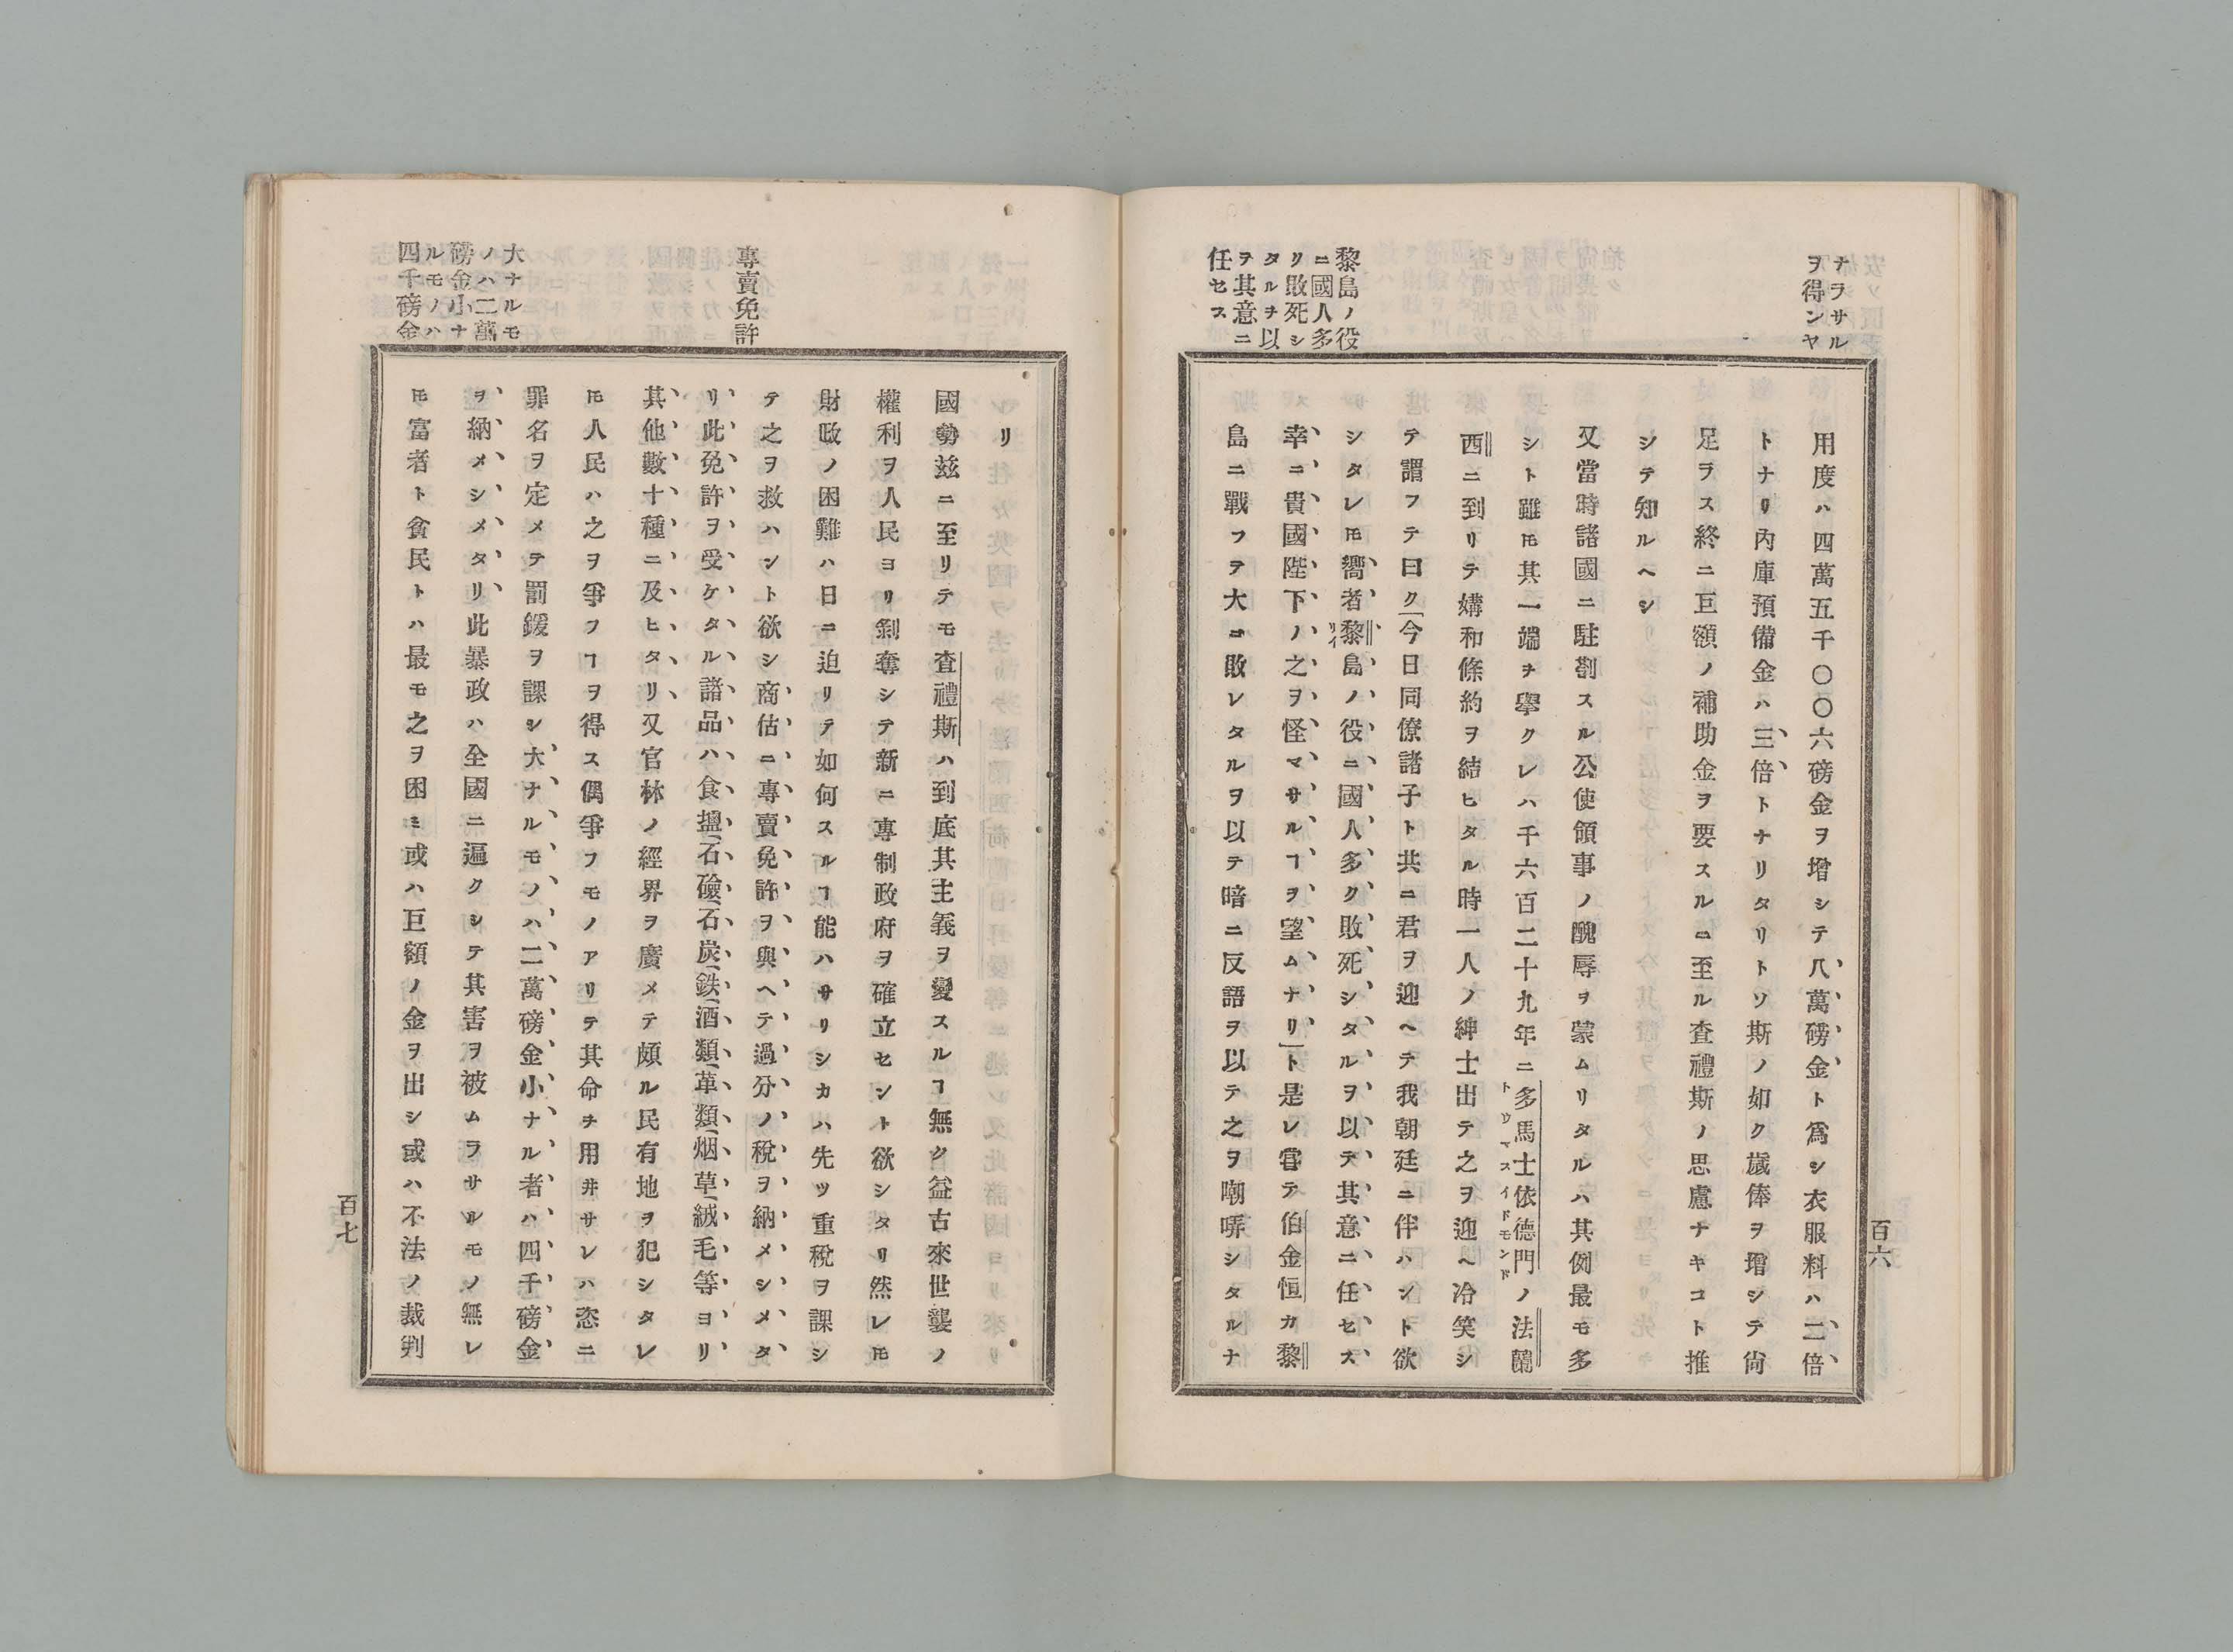 ナラサル
ヲ得ンヤ
黎島ノ役
ニ國人多
リ敗死シ
タルヲ以
ヲ其意ニ
任セス
用度ハ四萬五千〇〇六磅金ヲ增シテ八萬磅金ト爲シ衣服料ハ二倍
トナリ內庫預備金ハ三倍トナリタリトソ斯ノ如ク歲俸ヲ增シテ尙
足ラス終ニ巨額ノ補助金ヲ要スルニ至ル查禮斯ノ思慮ナキコト推
シテ知ルヘシ
又當時諸國ニ駐劄スル公使領事ノ醜辱ヲ蒙ムリタルハ其例最モ多
シト雖𪜈其一端ヲ擧クレハ千六百二十九年ニ多馬士依德門ノ法蘭
トウマスイドモンド
西ニ到リテ媾和條約ヲ結ヒタル時一人ノ紳士出テ之ヲ迎ヘ冷笑シ
テ謂フテ曰ク「今日同僚諸子ト共ニ君ヲ迎ヘテ我朝廷ニ伴ハント欲
シタレ𪜈嚮者黎島ノ役ニ國人多ク敗死シタルヲ以テ其意ニ任セス
リイ
幸ニ貴國陛下ノ之ヲ怪マサルヿヲ望ムナリ」ト是レ甞テ伯金恒カ黎
島ニ戰フヲ大ニ敗レタルヲ以テ暗ニ反語ヲ以テ之ヲ嘲哢シタルナ
百六
專賣免許
大ナルモ
ノハ二萬
磅金小ナ
ルモノハ
四千磅金
リ
國勢茲ニ至リテモ查禮斯ハ到底其主義ヲ變スルヿ無ク益古來世襲ノ
權利ヲ人民ヨリ剝奪シテ新ニ專制政府ヲ確立セント欲シタリ然レ𪜈
財政ノ困難ハ日ニ迫リテ如何スルヿ能ハサリシカハ先ツ重稅ヲ課シ
テ之ヲ救ハント欲シ商估ニ專賣免許ヲ與ヘテ過分ノ稅ヲ納メシメタ
リ此免許ヲ受ケタル諸品ハ食塩、石鹼、石炭、鉄、酒類、革類、烟草、絨毛等ヨリ
其他數十種ニ及ヒタリ又官林ノ經界ヲ廣メテ頗ル民有地ヲ犯シタレ
𪜈人民ハ之ヲ爭フヿヲ得ス偶爭フモノアリテ其命ヲ用井サレハ恣ニ
罪名ヲ定メテ罰鍰ヲ課シ大ナルモノハ二萬磅金小ナル者ハ四千磅金
ヲ納メシメタリ此暴政ハ全國ニ遍クシテ其害ヲ被ムラサルモノ無レ
𪜈富者ト貧民トハ最モ之ヲ困ミ或ハ巨額ノ金ヲ出シ或ハ不法ノ裁判
百七